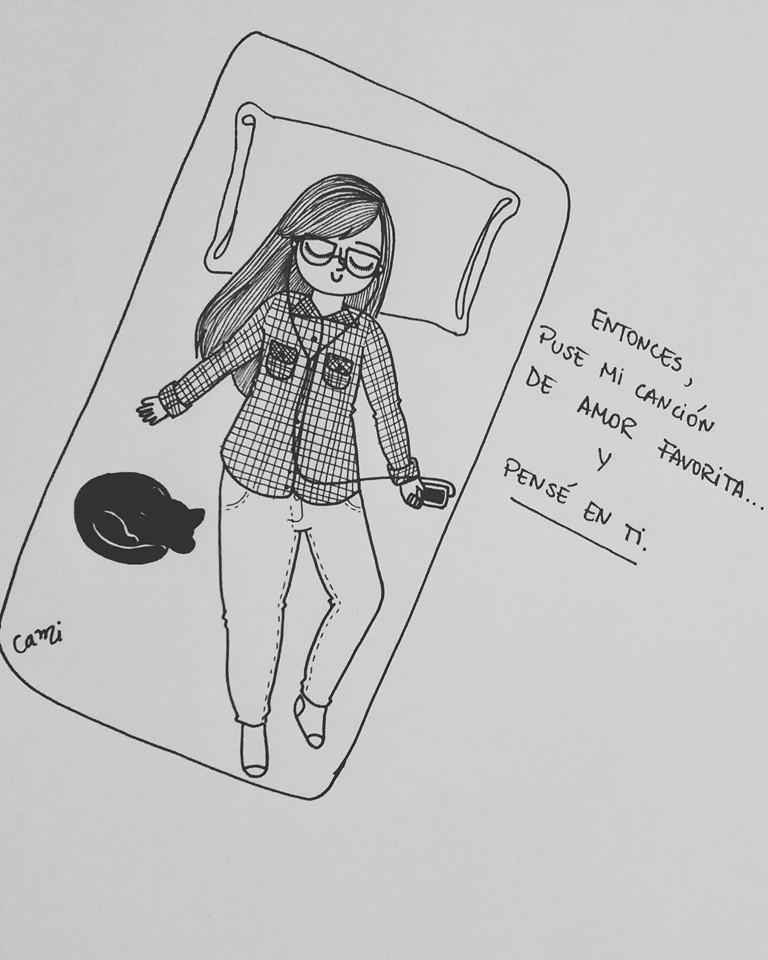 ENTONCES,
PUSE MI CANCIÓN
DE AMOR FAVORITA...
Y
PENSÉ EN TI.
Cami